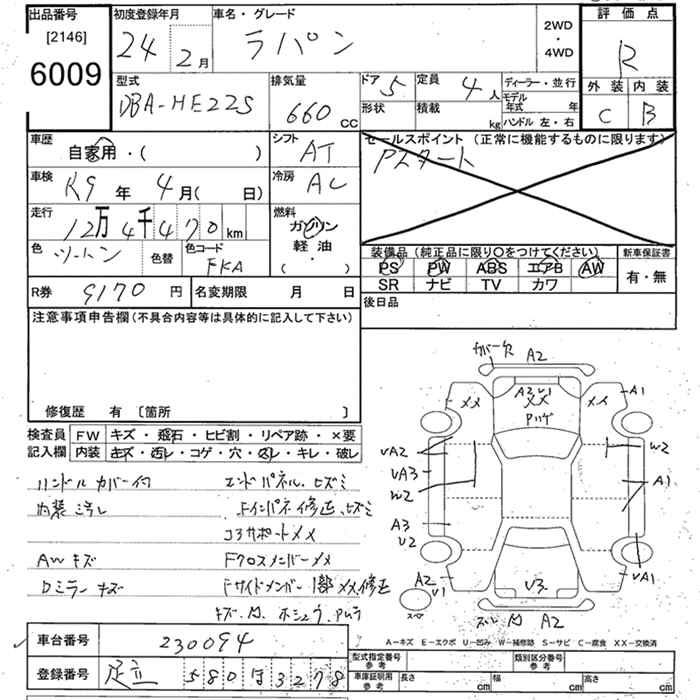 出品番号
[2146]
6009
初度登録年月
24年 2月
車名・グレード
ラパン
2WD
・
4WD
評価点
R
外装 内装
C B
型式
DBA-HE22S
排気量
660 CC
ドア 5
形状
定員 4人
積載 kg
ディーラー・並行
モデル年式 年
ハンドル 左・右
車歴
自家用・( )
シフト
AT
セールスポイント (正常に機能するものに限ります)
Pスタート
車検
R9年 4月( 日)
冷房
AC
走行
12万4千470km
燃料
ガソリン
軽油
・
( )
色
ツートン
色替
色コード
FKA
装備品 (純正品に限り〇をつけてください)
PS PW ABS エアB AW
SR ナビ TV カワ
新車保証書
有・無
R券 9170 円
名変期限 月 日
後日品
注意事項申告欄 (不具合内容等は具体的に記入して下さい)
修復歴 有 [箇所 ]
検査員記入欄
FW キズ・飛石・ヒビ割・リペア跡・×要
内装 キズ・汚レ・コゲ・穴・スレ・キレ・破レ
ハンドルカバー付
内装汚れ
AWキズ
Dミラーキズ
エンドパネルヒズミ
コアサポートメメ
FクロスメンバーメメFサイドメンバー1部メメ修正
カバー欠 A2
A2 U1
XX
XX
XX
A1
W2
A1
UA2
UA3
W2
A3
U2
A2
U1
V3
UA1
A2
A-キズ E-エクボ U-凹み W-補修跡 S-サビ C-腐食 XX-交換済
車台番号 230094
登録番号 足立 580 ほ 3278
型式指定番号 参考
類別区分番号 参考
車庫証明用 参考
長さ cm 幅 cm 高さ cm